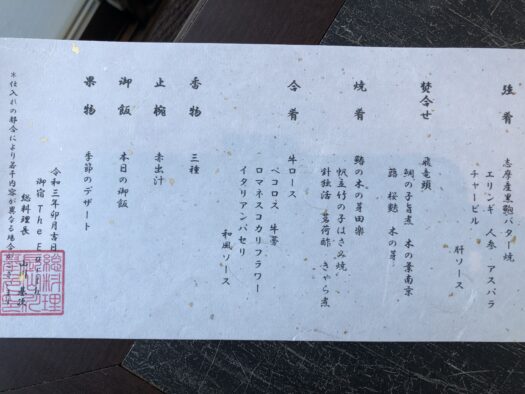 強肴
志摩産黒鮑バター焼
エリンギ 人参 アスパラ
チャービル 肝ソース
焚合せ
飛竜頭
鯛の子旨煮 木の葉南京
蕗 桜麩 木の芽
焼肴
鰆の木の芽田楽
帆立竹の子はさみ焼
針独活 茗荷酢 きゃら煮
合肴
牛ロース
ペコロス 牛蒡
ロマネスコカリフラワー
イタリアンパセリ
和風ソース
香物
三種
止椀
赤出汁
御飯
本日の御飯
果物
季節のデザート
令和三年卯月吉日
御宿 The Earth
総料理長
※仕入れの都合により若干内容が異なる場合